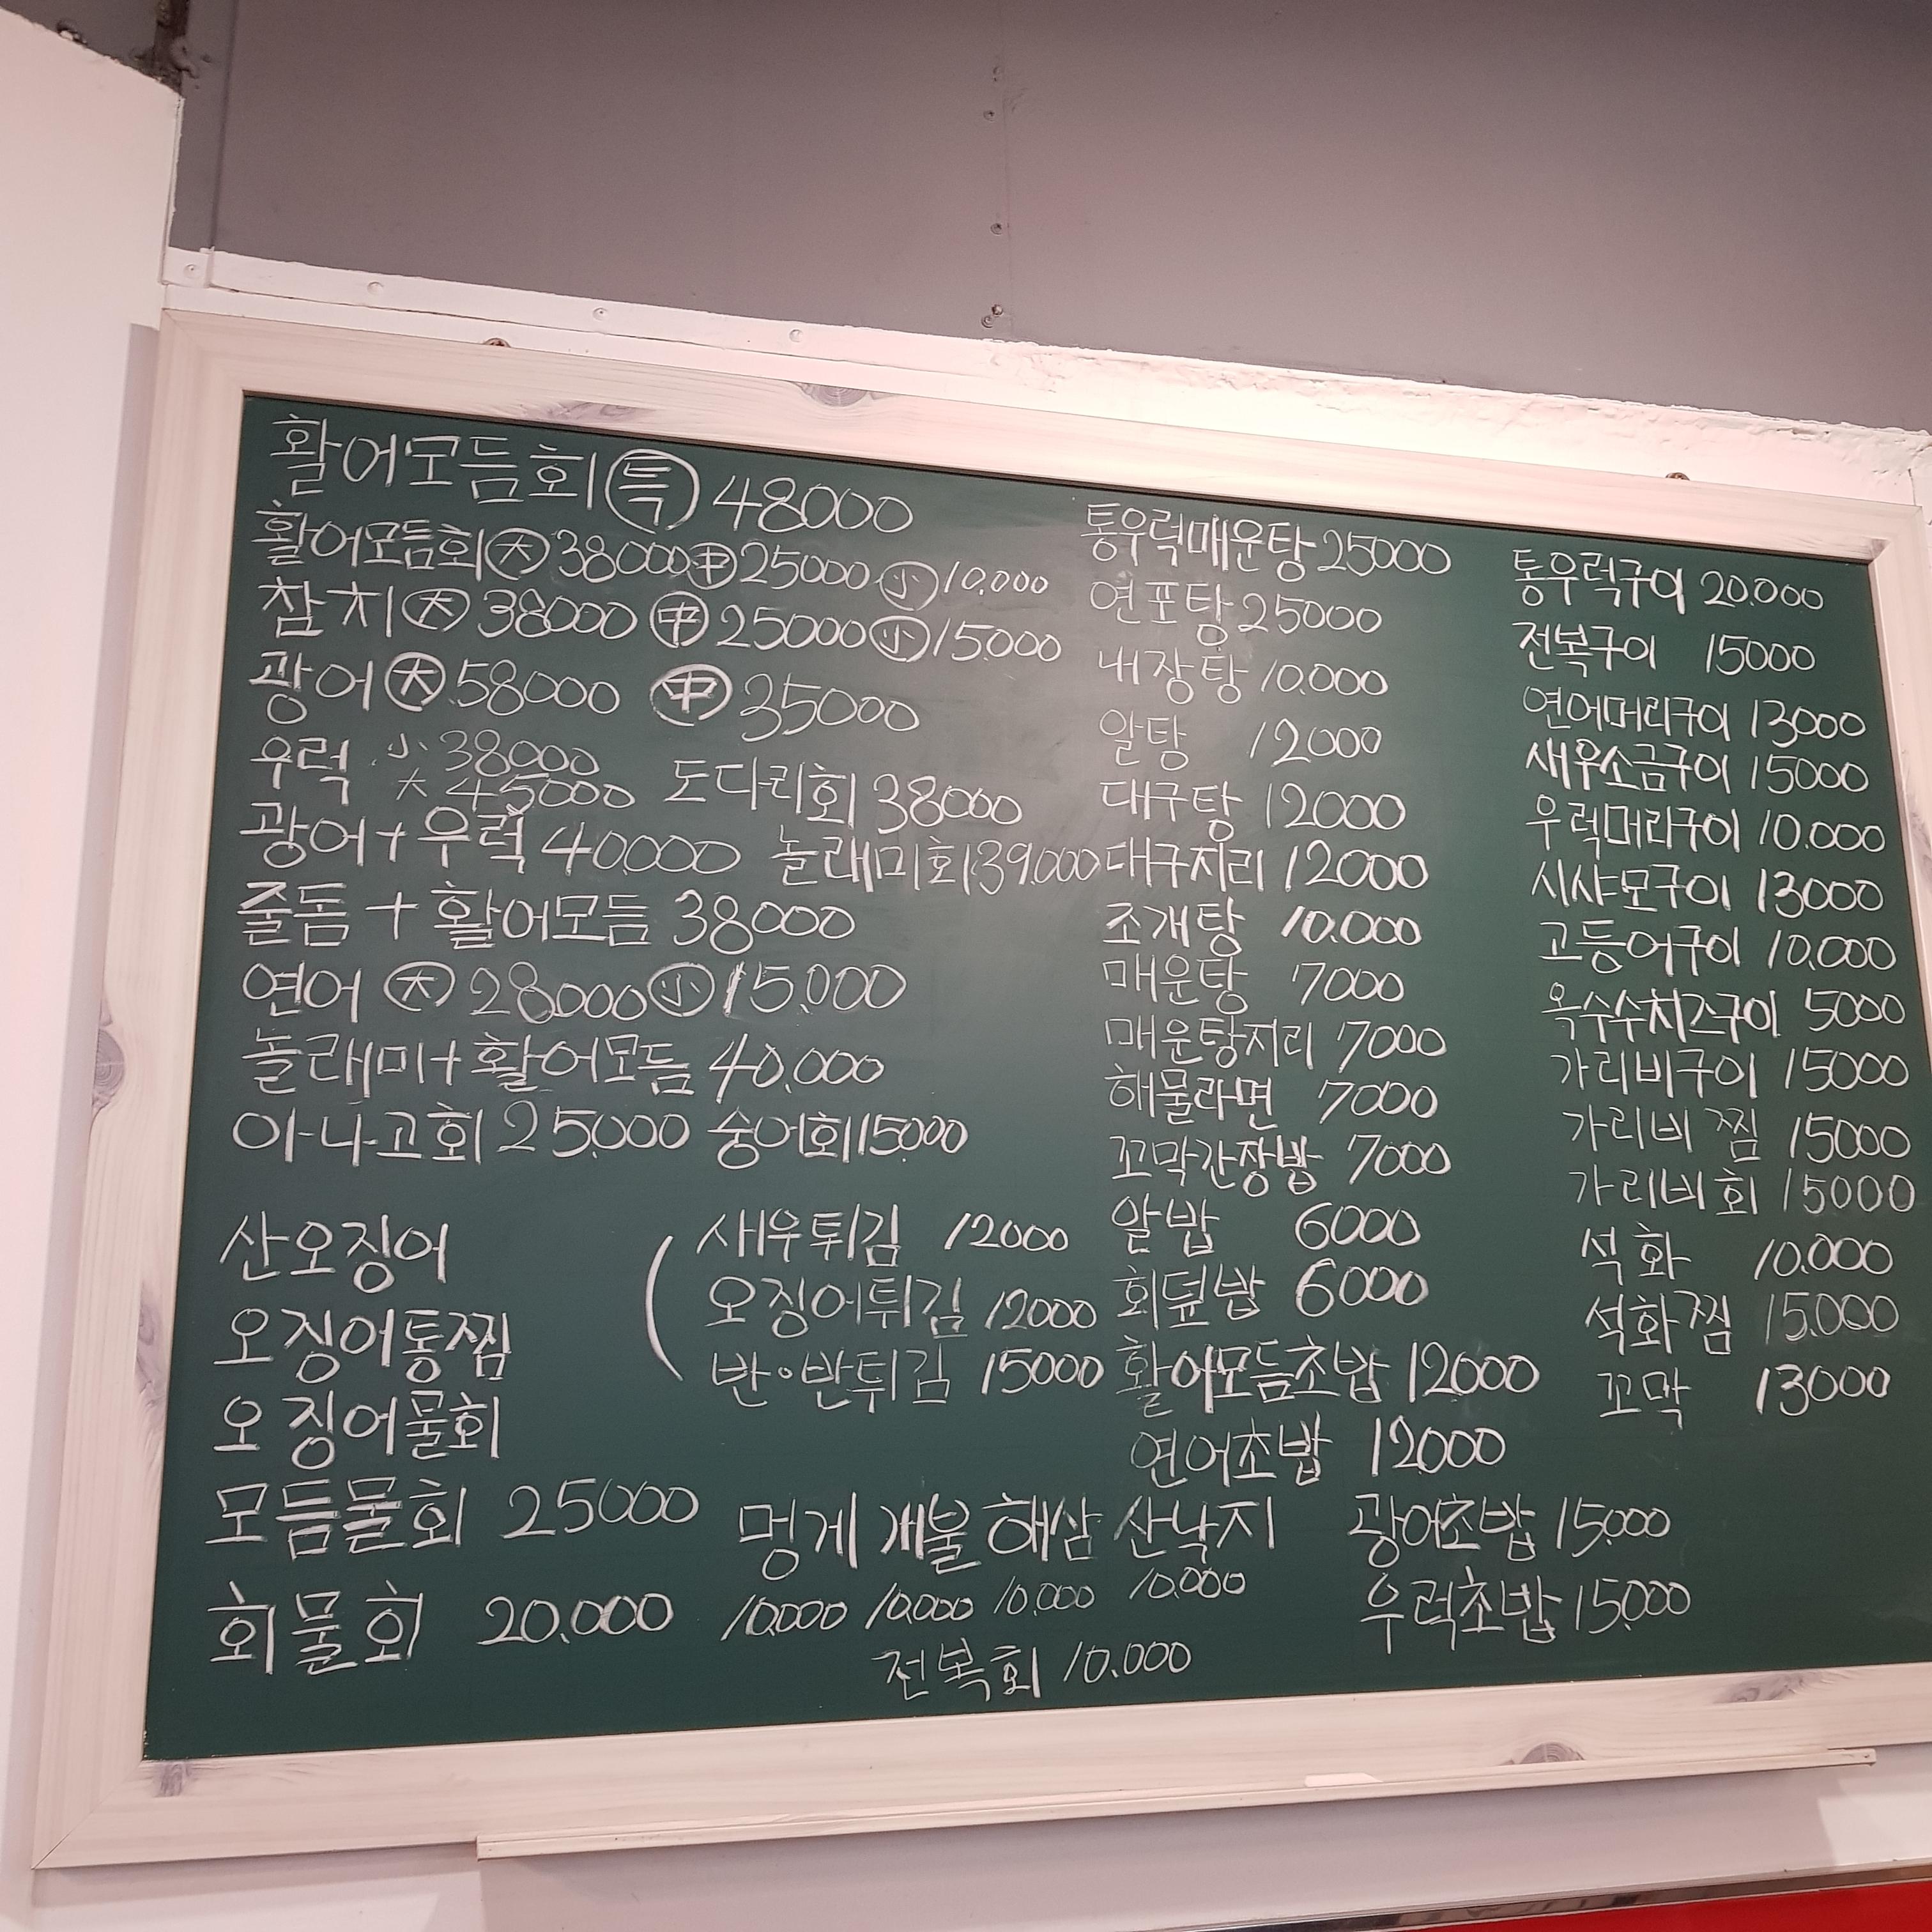 활어모듬회 특 48000
활어모듬회 大 38000 中 25000 小 10.000
참치 大 38000 中 25000 小 15.000
광어 大 58000 中 35000
우럭 小 38000
大 45000
도다리회 38000
광어+우럭 40.000 놀래미회 39.000
줄돔 + 활어모듬 38000
연어 大 28000 小 15.000
놀래미+활어모듬 40.000
아나고회 25.000 숭어회 15.000
산오징어
오징어통찜
오징어물회
모듬물회 25000
회물회 20.000
새우튀김 12000
오징어튀김 12000
반·반튀김 15000
멍게 개불 해삼 산낙지
10.000 10.000 10.000 10.000
전복회 10.000
통우럭매운탕 25000
연포탕 25000
내장탕 10.000
알탕 12000
대구탕 12000
대구지리 12000
조개탕 10.000
매운탕 7000
매운탕지리 7000
해물라면 7000
꼬막간장밥 7000
알밥 6000
회덮밥 6000
활어모듬초밥 12000
연어초밥 12000
광어초밥 15.000
우럭초밥 15.000
통우럭구이 20.000
전복구이 15000
연어머리구이 13000
새우소금구이 15000
우럭머리구이 10.000
시샤모구이 13000
고등어구이 10.000
옥수수치즈구이 5000
가리비구이 15000
가리비찜 15000
가리비회 15000
석화 10.000
석화찜 15.000
꼬막 13000